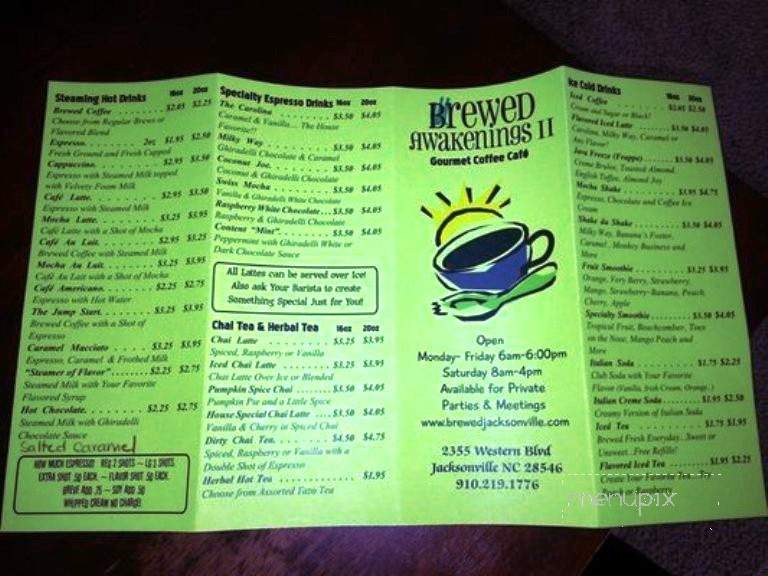 Steaming Hot Drinks 16oz 20oz
Brewed Coffee $2.05 $2.25
Choose from Regular Brews or
Flavored Blend
Espresso. 2oz $1.95 $2.50
Fresh Ground and Fresh Cupped
Cappuccino. $2.95 $3.50
Espresso with Steamed Milk topped
with Velvety Foam Milk
Café Latte. $2.95 $3.50
Espresso with Steamed Milk
Mocha Latte. $3.25 $3.95
Café Latte with a Shot of Mocha
Café Au Lait. $2.95 $3.25
Brewed Coffee with Steamed Milk
Mocha Au Lait. $3.25 $3.95
Café Au Lait with a Shot of Mocha
Café Americano. $2.25 $2.75
Espresso with Hot Water
The Jump Start. $3.25 $3.95
Brewed Coffee with a Shot of
Espresso
Caramel Macciato $3.25 $3.95
Espresso, Caramel & Frothed Milk
"Steamer of Flavor" $2.25 $2.75
Steamed Milk with Your Favorite
Flavored Syrup
Hot Chocolate. $2.25 $2.75
Steamed Milk with Ghiradelli
Chocolate Sauce
Salted Caramel
HOW MUCH ESPRESSO? REG 2 SHOTS ~ LG 3 SHOTS
EXTRA SHOT .50 EACH ~ FLAVOR SHOT .50 EACH
BREVE ADD .75 ~ SOY ADD .50
WHIPPED CREAM NO CHARGE!
Specialty Espresso Drinks 16oz 20oz
The Carolina $3.50 $4.05
Caramel & Vanilla.... The House
Favorite!!
Milky Way $3.50 $4.05
Ghiradelli Chocolate & Caramel
Coconut Joe. $3.50 $4.05
Coconut & Ghiradelli Chocolate
Swiss Mocha $3.50 $4.05
Vanilla & Ghiradelli White Chocolate
Raspberry White Chocolate $3.50 $4.05
Raspberry & Ghiradelli Chocolate
Content "Mint" $3.50 $4.05
Peppermint with Ghiradelli White or
Dark Chocolate Sauce
All Lattes can be served over Ice!
Also ask Your Barista to create
Something Special Just for You!
Chai Tea & Herbal Tea 16oz 20oz
Chai Latte $3.25 $3.95
Spiced, Raspberry or Vanilla
Iced Chai Latte $3.25 $3.95
Chai Latte Over Ice or Blended
Pumpkin Spice Chai $3.50 $4.05
Pumpkin Pie and a Little Spice
House Special Chai Latte $3.50 $4.05
Vanilla & Cherry in Spiced Chai
Dirty Chai Tea. $4.50 $4.75
Spiced, Raspberry or Vanilla with a
Double Shot of Espresso
Herbal Hot Tea $1.95
Choose from Assorted Tazo Tea
Brewed
Awakenings II
Gourmet Coffee Café
Open
Monday- Friday 6am-6:00pm
Saturday 8am-4pm
Available for Private
Parties & Meetings
www.brewedjacksonville.com
2355 Western Blvd
Jacksonville NC 28546
910.219.1776
Ice Cold Drinks 16oz 20oz
Iced Coffee $2.05 $2.50
Cream and Sugar or Black!
Flavored Iced Latte $3.50 $4.05
Carolina, Milky Way, Caramel or
Any Flavor!
Java Freeze (Frappe) $3.50 $4.05
Creme Brulee, Toasted Almond,
English Toffee, Almond Joy
Mocha Shake $3.95 $4.75
Espresso, Chocolate and Coffee Ice
Cream
Shake da Shake $3.50 $4.05
Milky Way, Banana's Foster,
Caramel, Monkey Business and
More
Fruit Smoothie $3.25 $3.95
Orange, Very Berry, Strawberry,
Mango, Strawberry-Banana, Peach,
Cherry, Apple
Specialty Smoothie $3.50 $4.05
Tropical Fruit, Beachcomber, Toes
on the Nose, Mango Peach and
More
Italian Soda $1.75 $2.25
Club Soda with Your Favorite
Flavor (Vanilla, Irish Cream, Orange..)
Italian Creme Soda $1.95 $2.50
Creamy Version of Italian Soda
Iced Tea $1.75 $1.95
Brewed Fresh Everyday...Sweet or
Unsweet...Free Refills!
Flavored Iced Tea $1.95 $2.25
Create Your Favorite Tea
Peach or Raspberry
menupix